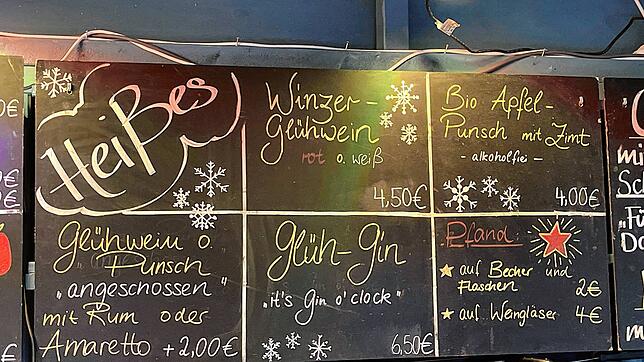 Heißes
Winzer-
Glühwein
rot o. weiß
4,50€
Bio Apfel-
Punsch mit Zimt
- alkoholfrei -
4,00€
Glühwein o.
Punsch
"angeschossen"
mit Rum oder
Amaretto +2,00€
Glüh-Gin
"it's Gin o'clock"
6,50€
Pfand
auf Becher und
Flaschen 2€
auf Weingläser 4€